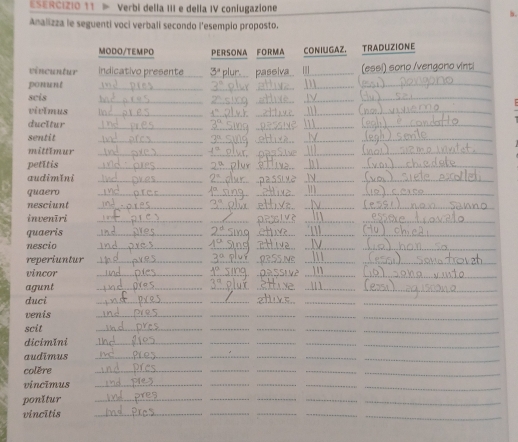 ESERCIZIO 11 ▶ Verbi della III e della IV coniugazione
Analizza le seguenti voci verbali secondo l'esempio proposto.
MODO/TEMPO PERSONA FORMA CONIUGAZ. TRADUZIONE
vincuntur Indicativo presente 3ª plur. passiva III (essi) sono/vengono vinti
ponunt ind pres 3ª plur attiva III (essi) pongono
scis ind pres 2ª sing attiva IV (tu) sai
vivĭmus ind pres 1ª plur attiva III (noi) viviamo
ducĭtur ind pres 3ª sing passiva III (egli) è condotto
sentit ind pres 3ª sing attiva IV (egli) sente
mittĭmur ind pres 1ª plur passiva III (noi) siamo
petĭtis ind pres 2ª plur attiva III (voi) chiedete
audimĭni ind pres 2ª plur passiva IV (voi) siete
quaero ind pres 1ª sing attiva III (io) cerco
nesciunt ind pres 3ª plur attiva IV (essi) non sanno
inveniri inf pres / passiva essere trovato
quaeris ind pres 2ª sing attiva III (tu) chiedi
nescio ind pres 1ª sing attiva IV (io) non so
reperiuntur ind pres 3ª plur passiva (essi) sono trovati
vincor ind pres 1ª sing passiva III (io) sono vinto
agunt ind pres 3ª plur attiva III (essi) agiscono
duci inf pres / attiva
venis ind pres
scit ind pres
dicimĭni ind pres
audīmus ind pres
colĕre ind pres
vincĭmus ind pres
ponĭtur ind pres
vincĭtis ind pres